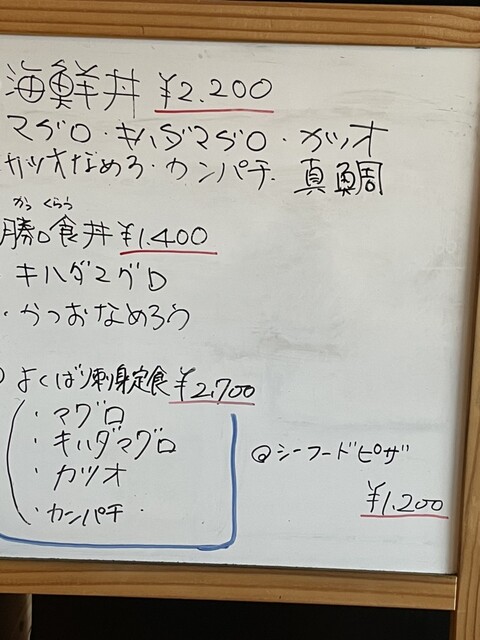 海鮮丼 ¥2.200
マグロ・キハダマグロ・カツオ
カツオなめろ・カンパチ. 真鯛
かっ くらう
勝口食丼 ¥1.400
キハダマグロ
・かつおなめろう
よくばり刺身定食 ¥2,700
・マグロ
・キハダマグロ
・カツオ
・カンパチ・
◎シーフードピザ
¥1.200